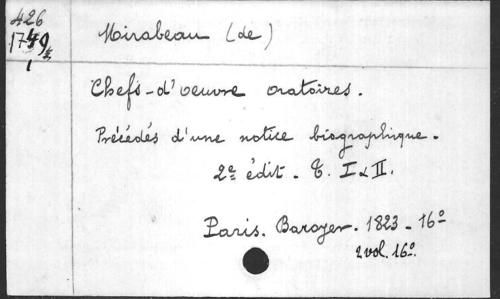 426
Mirabeau (de)
1
Chefs-d'oeuvre oratoires.
Précédés d'une notice biographique.
2e édit. T. I & II.
Paris. Baroyer. 1823 - 16º
2 vol. 16º.